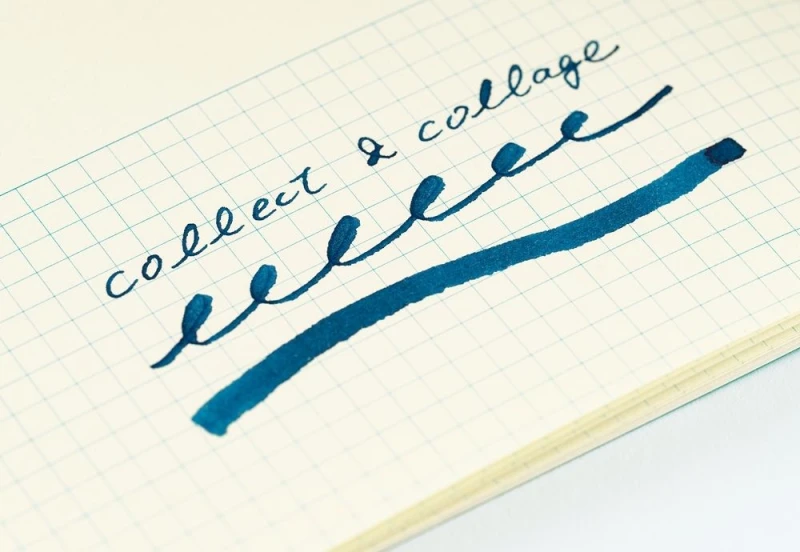 collect & collage